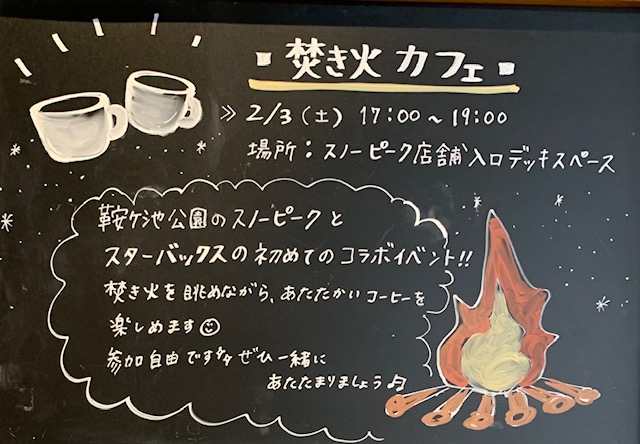 焚き火 カフェ
≫ 2/3 (土) 17:00～19:00
場所：スノーピーク店舗入口デッキスペース
鞍ケ池公園のスノーピークと
スターバックスの初めてのコラボイベント!!
焚き火を眺めながら、あたたかいコーヒーを
楽しめます☺
参加自由です♪♪ ぜひ一緒に
あたたまりましょう♫